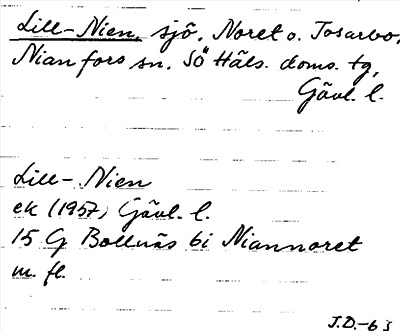 Lill-Nien, sjö, Noret o. Tosarbo,
Nianfors sn, Sö Häls. doms. tg,
Gävl. l.
Lill-Nien
ek (1957) Gävl. l.
15 G Bollnäs bi Niannoret
m. fl.
J.D.-63